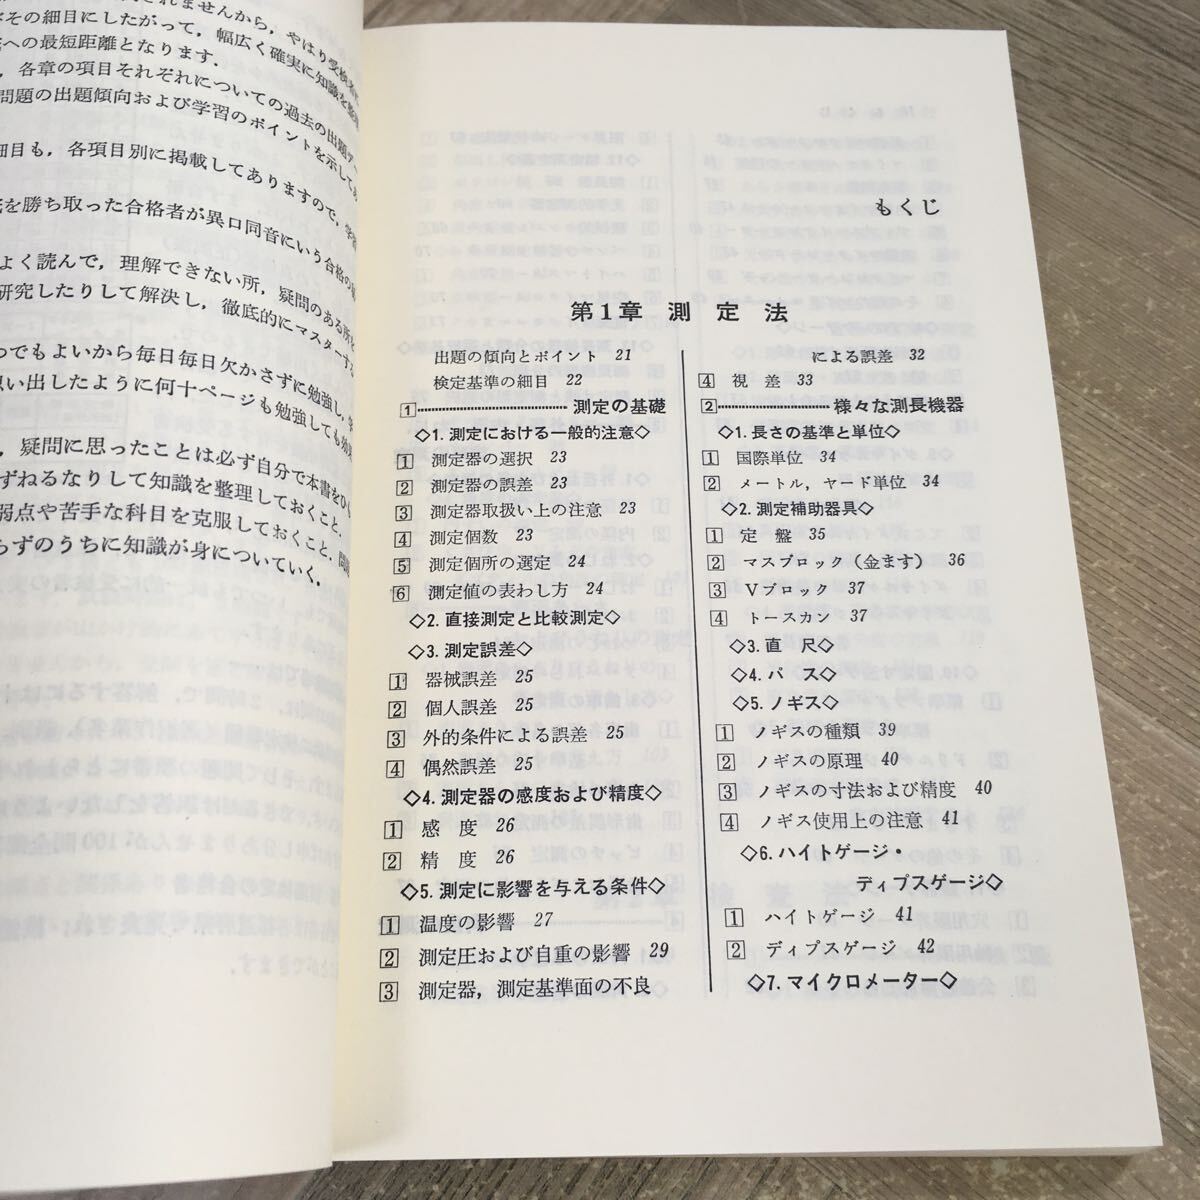 その細目にしたがって，幅広く確実に知識を
への最短距離となります．
，各章の項目それぞれについての過去の出題
問題の出題傾向および学習のポイントを示して
細目も，各項目別に掲載してありますので，
を勝ち取った合格者が異口同音にいう合格の
よく読んで，理解できない所，疑問のある所
研究したりして解決し，徹底的にマスターする
つでもよいから毎日毎日欠かさずに勉強し，
思い出したように何十ページも勉強しても
，疑問に思ったことは必ず自分で本書をひ
ずねるなりして知識を整理しておくこと．
弱点や苦手な科目を克服しておくこと．
らずのうちに知識が身についていく．
もくじ
第1章 測 定 法
出題の傾向とポイント 21
検定基準の細目 22
1 測定の基礎
◇1. 測定における一般的注意◇
1 測定器の選択 23
2 測定器の誤差 23
3 測定器取扱い上の注意 23
4 測定個数 23
5 測定個所の選定 24
6 測定値の表わし方 24
◇2. 直接測定と比較測定◇
◇3. 測定誤差◇
1 器械誤差 25
2 個人誤差 25
3 外的条件による誤差 25
4 偶然誤差 25
◇4. 測定器の感度および精度◇
1 感 度 26
2 精 度 26
◇5. 測定に影響を与える条件◇
1 温度の影響 27
2 測定圧および自重の影響 29
3 測定器，測定基準面の不良
による誤差 32
4 視 差 33
2 様々な測長機器
◇1. 長さの基準と単位◇
1 国際単位 34
2 メートル，ヤード単位 34
◇2. 測定補助器具◇
1 定 盤 35
2 マスブロック（金ます） 36
3 Vブロック 37
4 トースカン 37
◇3. 直 尺◇
◇4. パ ス◇
◇5. ノギス◇
1 ノギスの種類 39
2 ノギスの原理 40
3 ノギスの寸法および精度 40
4 ノギス使用上の注意 41
◇6. ハイトゲージ・
ディプスゲージ◇
1 ハイトゲージ 41
2 ディプスゲージ 42
◇7. マイクロメーター◇